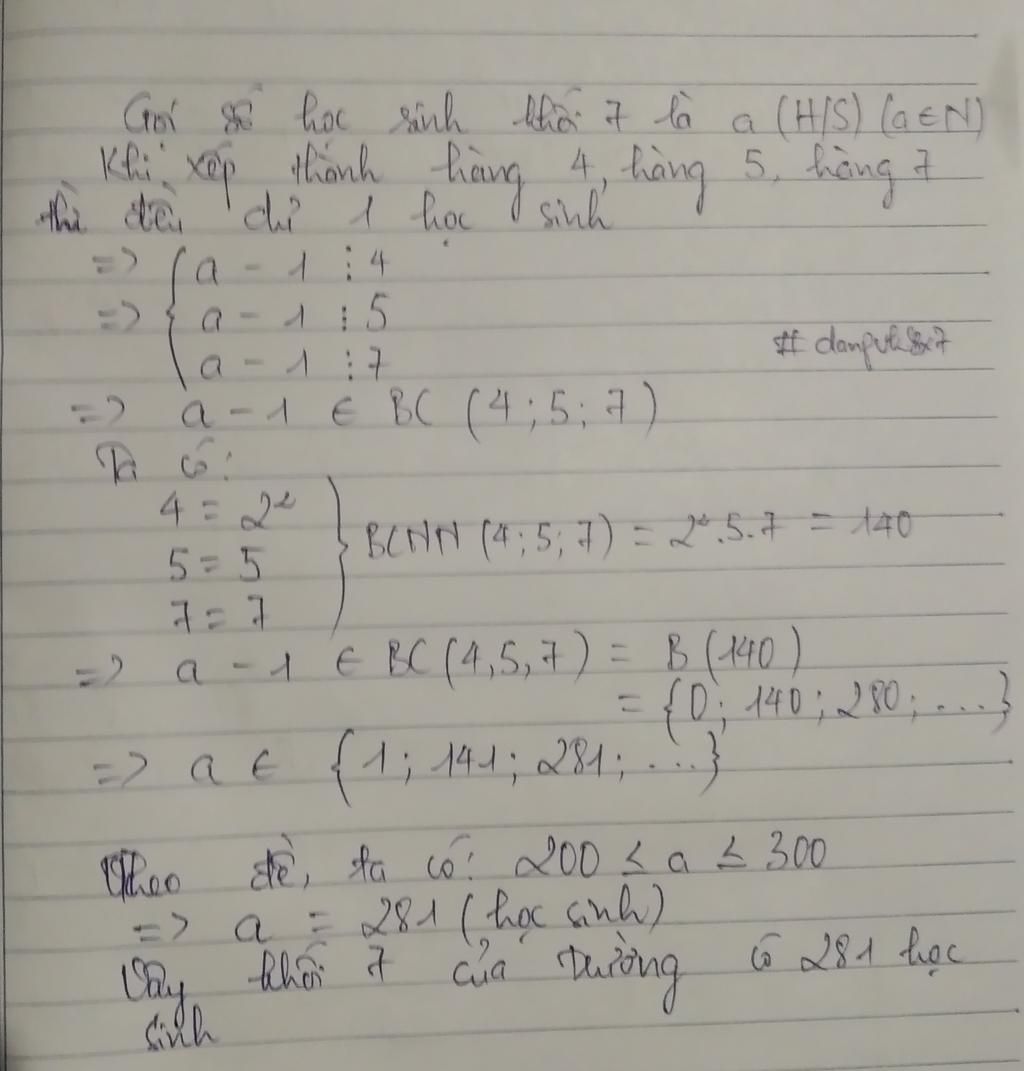 Gọi số học sinh khối 7 là a (H/S) (a ∈ N)
Khi xếp thành hàng 4, hàng 5, hàng 7
thì đều dư 1 học sinh
=> { a - 1 ⋮ 4
=> a - 1 ⋮ 5
a - 1 ⋮ 7
=> a - 1 ∈ BC (4; 5; 7)
Ta có:
4 = 2²
5 = 5
7 = 7
} BCNN (4; 5; 7) = 2².5.7 = 140
=> a - 1 ∈ BC (4, 5, 7) = B (140)
= {0; 140; 280; ...}
=> a ∈ {1; 141; 281; ...}
Theo đề, ta có: 200 ≤ a ≤ 300
=> a = 281 (học sinh)
Vậy khối 7 của trường có 281 học
sinh